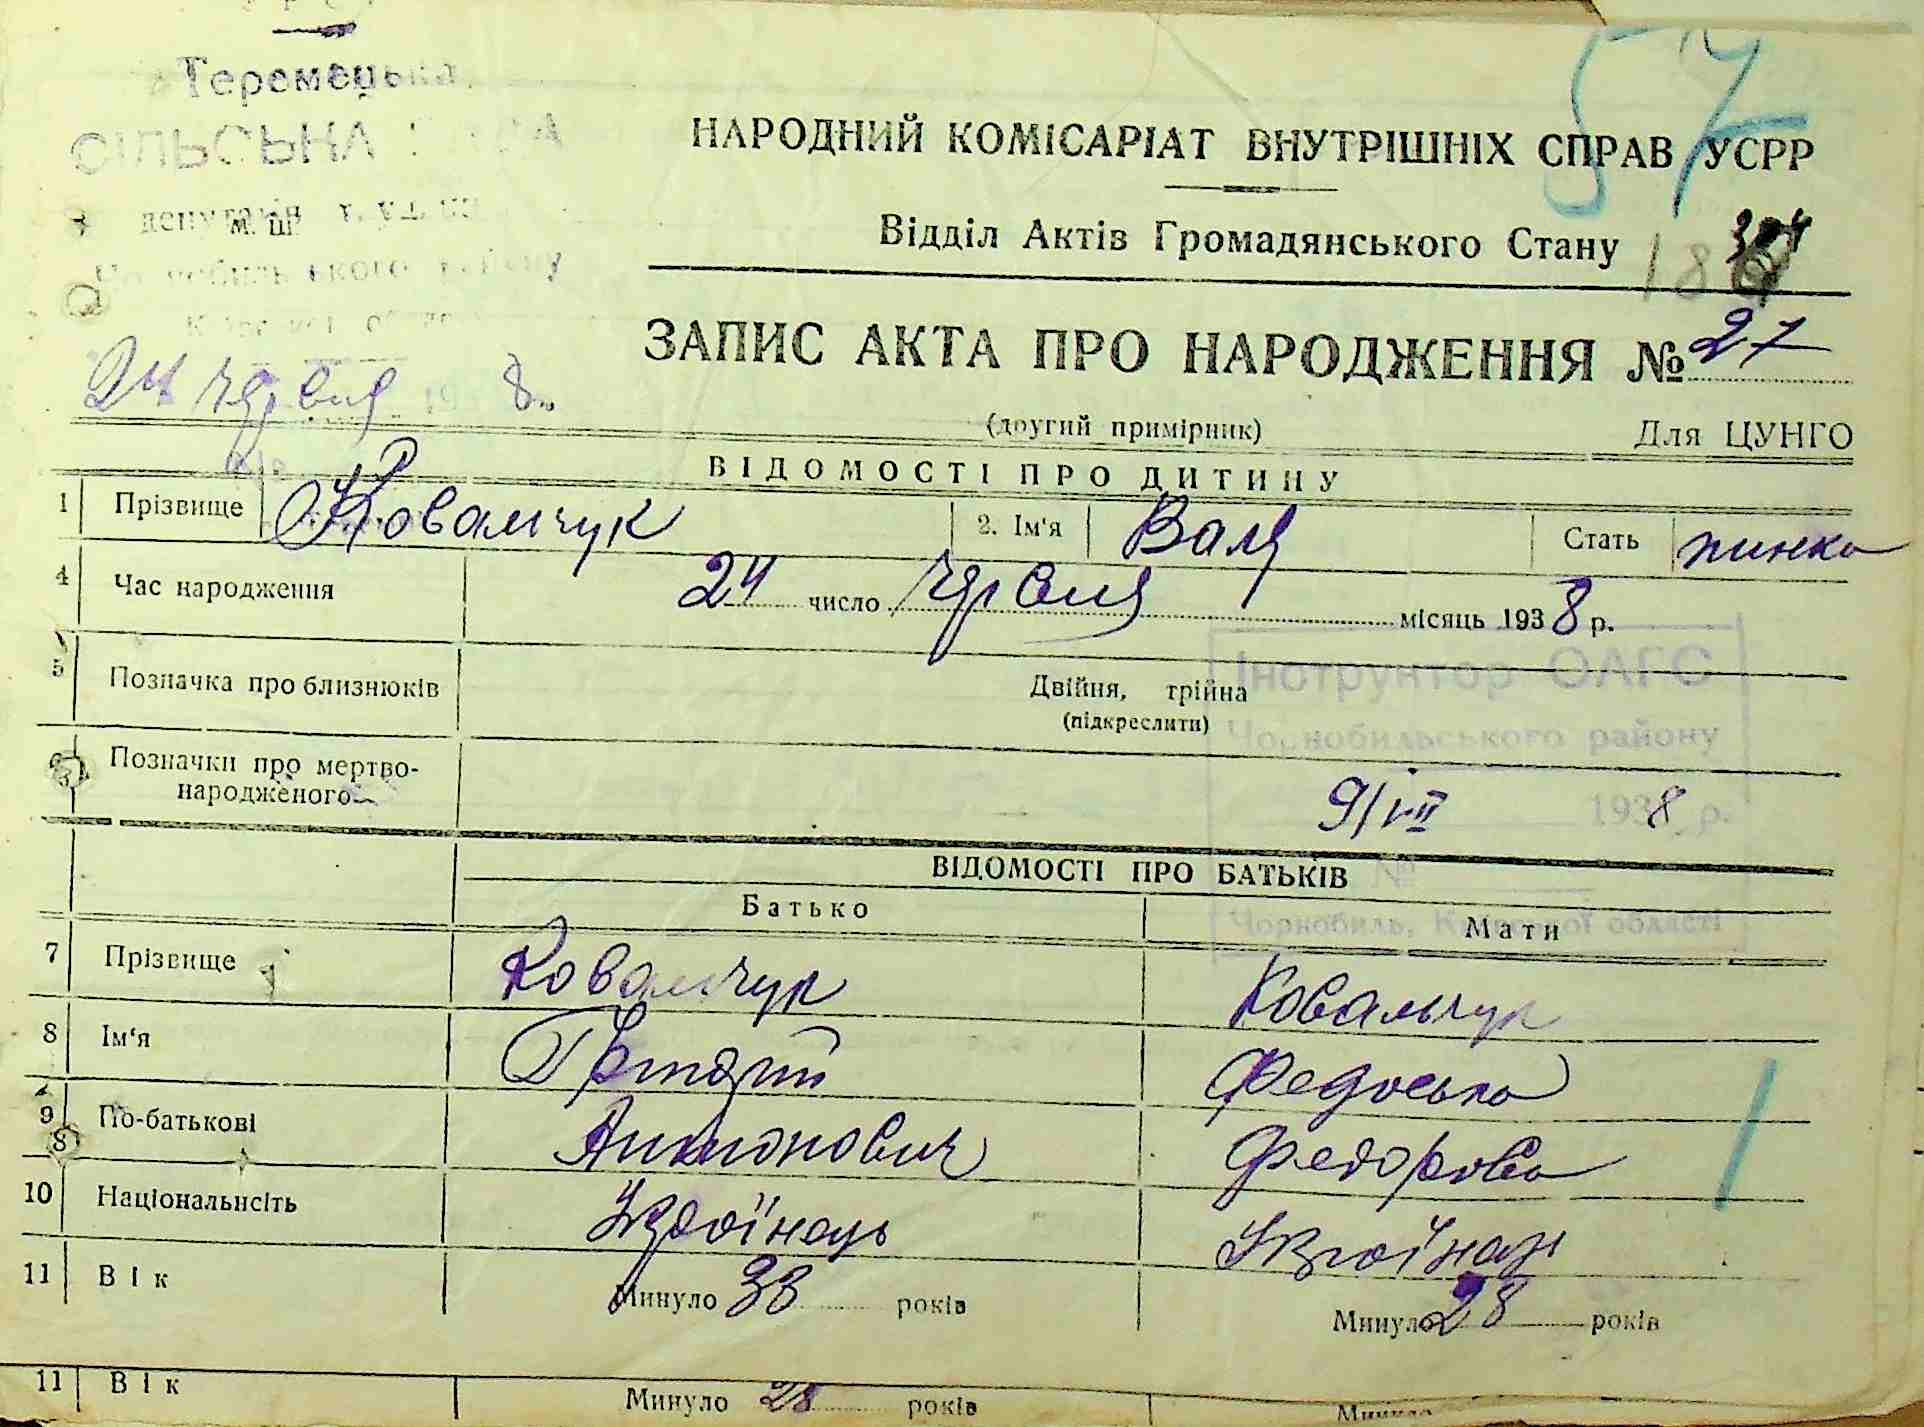 57
Теремецька
СІЛЬСЬКА РАДА
депутатів
м. ш.
НАРОДНИЙ КОМІСАРІАТ ВНУТРІШНІХ СПРАВ УСРР
Відділ Актів Громадянського Стану
ЗАПИС АКТА ПРО НАРОДЖЕННЯ № 27
24 червня 8
(другий примірник) Для ЦУНГО
ВІДОМОСТІ ПРО ДИТИНУ
1 Прізвище Ковальчук 2. Ім'я Валя Стать жинка
4 Час народження 24 число червня місяць 1938 р.
5 Позначка про близнюків Двійня, трійна
(підкреслити)
Інструктор ОАГС
Чорнобильського району
6 Позначки про мертво-
народженого
9/VII 1938 р.
№
Чорнобиль, Київської області
ВІДОМОСТІ ПРО БАТЬКІВ
Батько Мати
7 Прізвище Ковальчук Ковальчук
8 Ім'я Федоська
9 По-батькові Антонович Федоровна
10 Національність Українець Українка
11 Вік Минуло 38 років Минуло 28 років
11 Вік Минуло 28 років Минуло